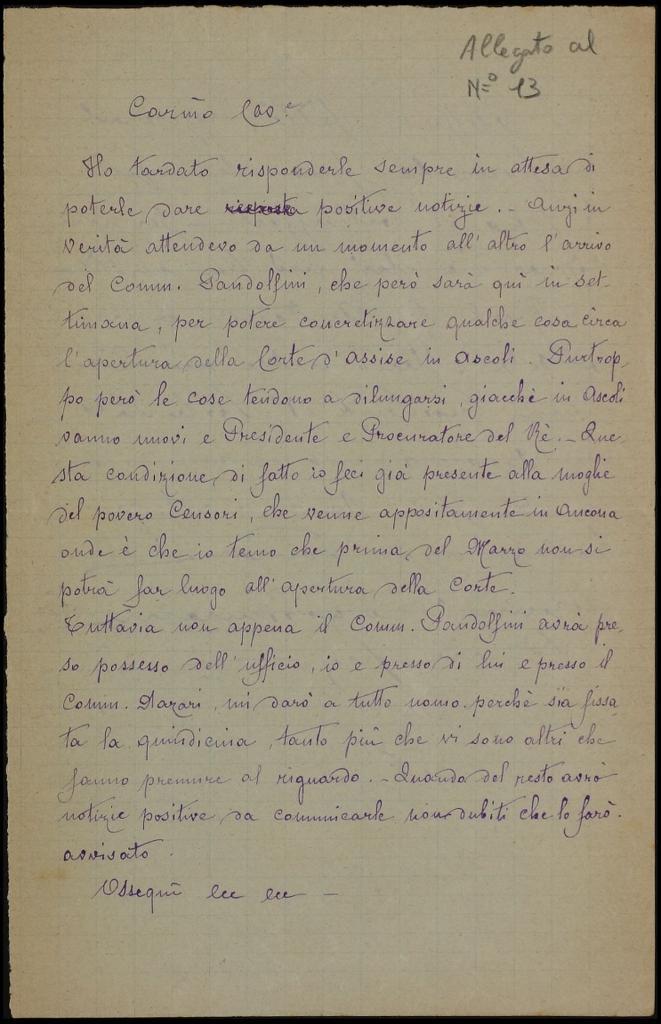 Allegato al
N=º 13
Carmo Cav.e
Ho tardato risponderle sempre in attesa di
poterle dare risposta positive notizie. - Anzi in
verità attendevo da un momento all'altro l'arrivo
del Comm. Pandolfini, che però sarà quì in set-
timana, per potere concretizzare qualche cosa circa
l'apertura della Corte d'Assise in Ascoli. Purtrop-
po però le cose tendono a dilungarsi, giacchè in Ascoli
vanno nuovi e Presidente e Procuratore del Rè. - Que-
sta condizione di fatto io feci già presente alla moglie
del povero Censori, che venne appositamente in Ancona
onde è che io temo che prima del Marzo non si
potrà far luogo all'apertura della Corte.
Tuttavia non appena il Comm. Pandolfini avrà pre-
so possesso dell'ufficio, io e presso di lui e presso il
Comm. Nazari, mi darò a tutto uomo perchè sia fissa-
ta la quindicina, tanto più che vi sono altri che
fanno premure al riguardo. - Quando del resto avrò
notizie positive da comunicarle non dubiti che lo farò
avvisato.
Ossequi ecc ecc -